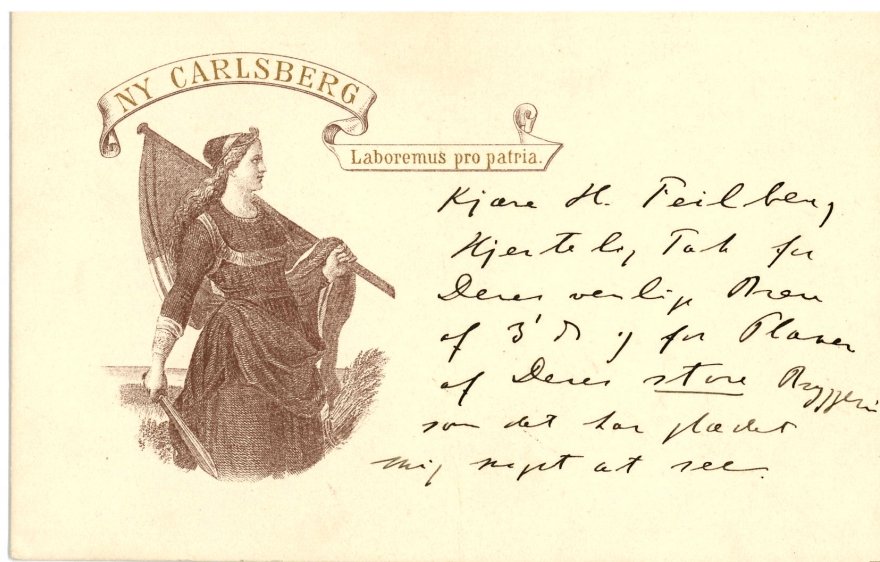 NY CARLSBERG
Laboremus pro patria.
Kjære H. Feilberg
Hjertelig Tak for
Deres venlige Brev
af 3' ds og for Planer
af Deres store Bryggeri
som det har glædet
mig meget at see.